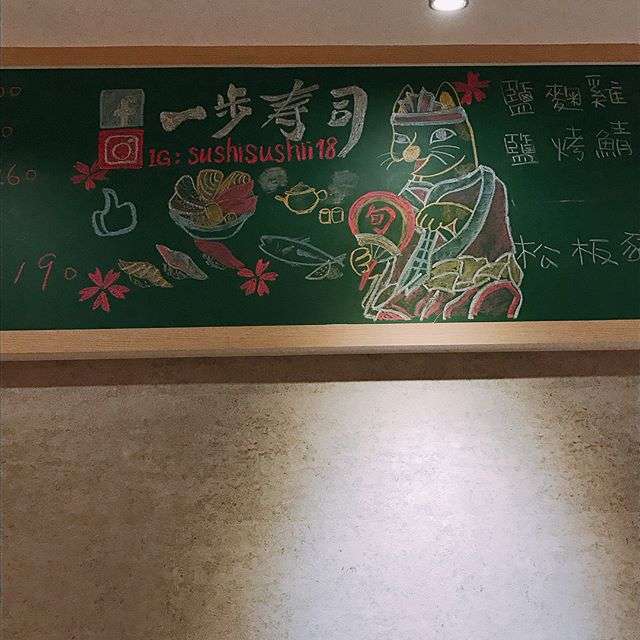 一步寿司
IG: sushisushi18
旬
鹽麴雞
鹽烤鯖
松板豬
60
190